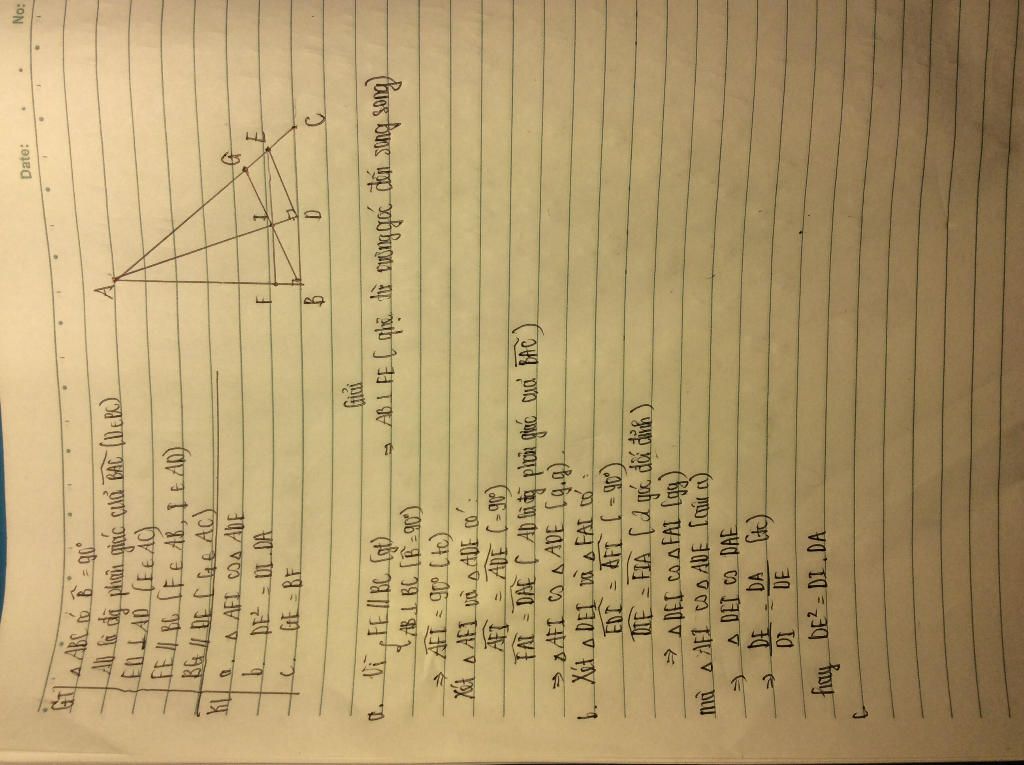 No:
Date:
Gt Δ ABC có B̂ = 90°
AD là đg phân giác của BAC (D ∈ BC)
ED ⊥ AD (E ∈ AC)
FE // BC (F ∈ AB, I ∈ AD)
BG // DE (G ∈ AC)
Kl a. Δ AFI ∽ Δ ADE
b. DE² = DI . DA
c. GE = BF
A
G
E
F
I
B
D
C
Giải
a. Vì { FE // BC (gt)
AB ⊥ BC (B̂ = 90°)
⇒ AB ⊥ FE (qhệ từ vuông góc đến song song)
⇒ AFI = 90° (tc)
Xét Δ AFI và Δ ADE có:
AFI = ADE (= 90°)
FAI = DAE (AD là đg phân giác của BAC)
⇒ Δ AFI ∽ Δ ADE (g.g).
b. Xét Δ DEI và Δ FAI có:
EDI = AFI (= 90°)
DIE = FIA (2 góc đối đỉnh)
⇒ Δ DEI ∽ Δ FAI (gg)
mà Δ AFI ∽ Δ ADE (câu a)
⇒ Δ DEI ∽ DAE
⇒ DE/DI = DA/DE (tc)
hay DE² = DI . DA
c.